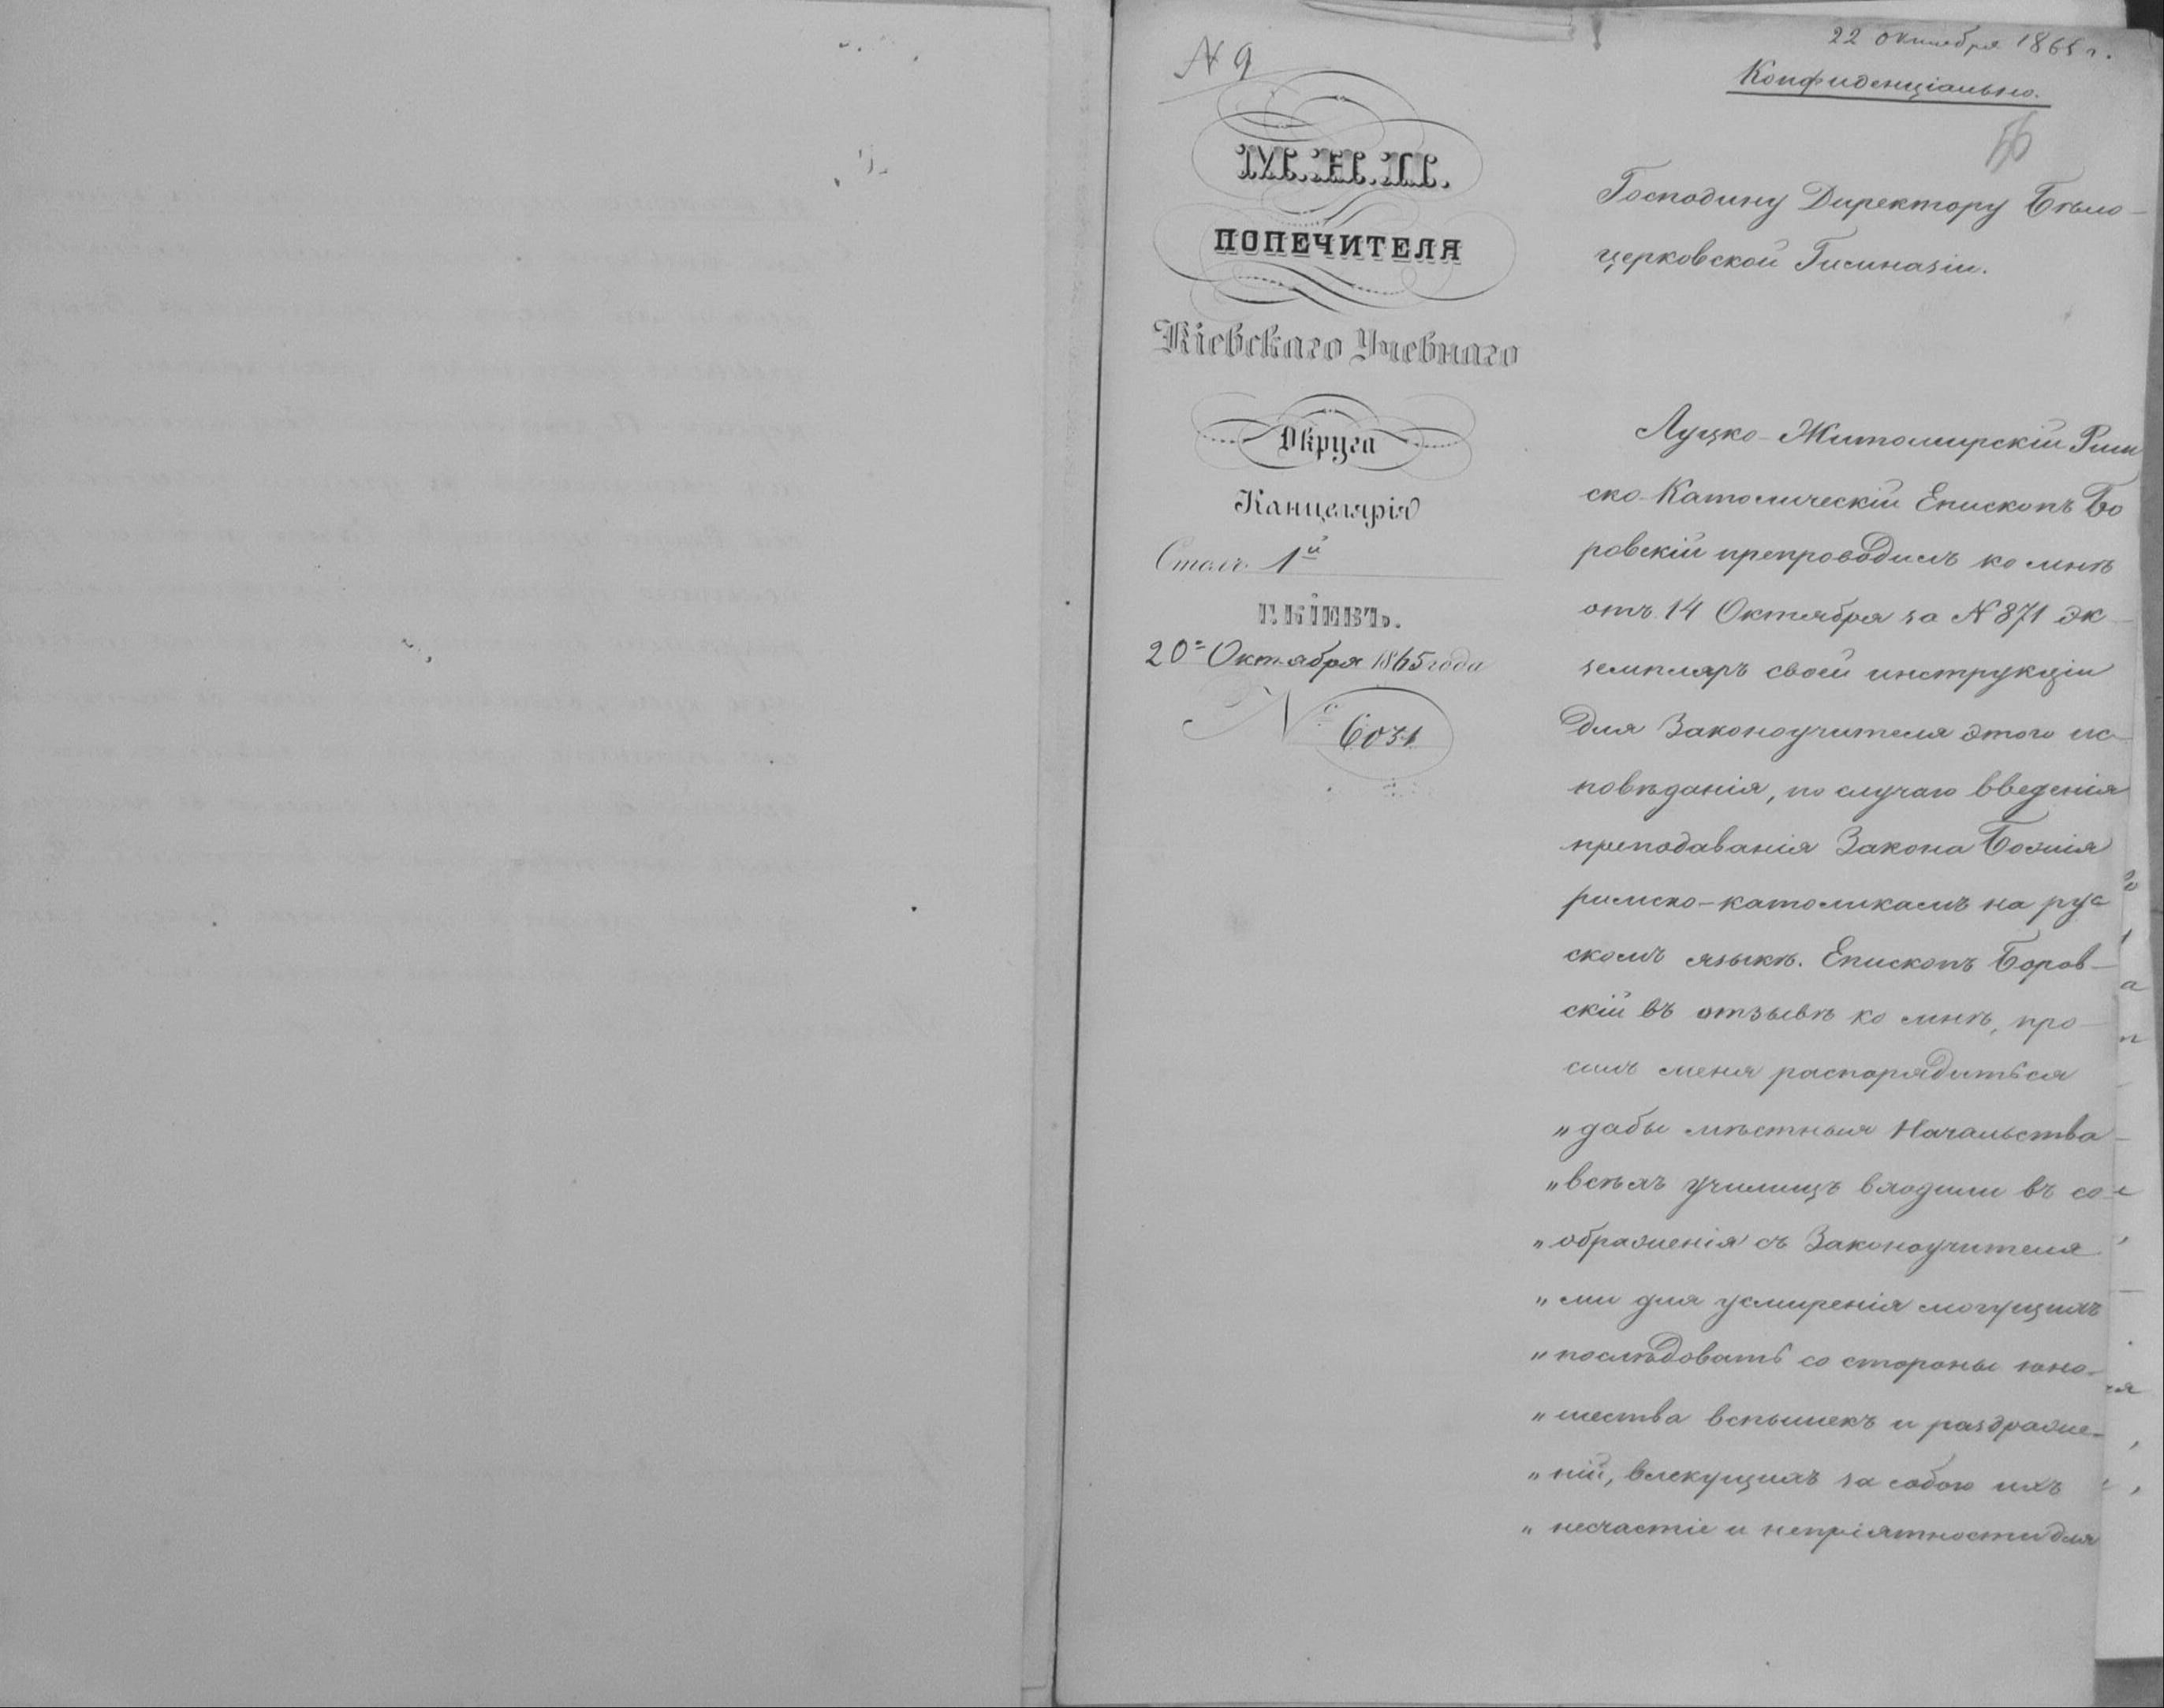 N 9
22 Октября 1865 г.
Конфиденціально.
М.Н.П.
ПОПЕЧИТЕЛЯ
Кіевскаго Учебнаго
Округа
Канцелярія
Столъ 1й
Г. КІЕВЪ.
20 Октября 1865 года
№ 6031
Господину Директору Бѣло-
церковской Гимназіи.
Луцко-Житомирскій Рим
ско-Католическій Епископъ Бо
ровскій препроводилъ ко мнѣ
отъ 14 Октября за N 871 эк-
земпляръ своей инструкціи
для Законоучителя этого ис-
повѣданія, по случаю введенія
преподаванія Закона Божія
римско-католикамъ на рус
скомъ языкѣ. Епископъ Боров-
скій въ отзывѣ ко мнѣ, про-
силъ меня распорядиться
„дабы мѣстныя Начальства
„всѣхъ училищъ входили въ со-
„ображенія съ Законоучителя
„ми для усмиренія могущихъ
„послѣдовать со стороны юно-
„шества вспышекъ и раздраже-
„ній, влекущихъ за собою ихъ
„несчастіе и непріятности для